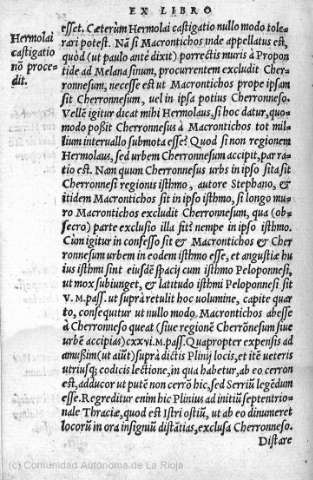 EX LIBRO
Hermolai
castigatio
nō proce
dit.
esset. Cæterùm Hermolai castigatio nullo modo tole
rari potest. Nã si Macrontichos inde appellatus est,
quòd (ut paulo antè dixit) porrectis muris à Propon
tide ad Melanasinum, procurrentem excludit Cher-
ronnesum, necesse est ut Macrontichos prope ipsam
sit Cherronnesum, uel in ipsa potius Cherronneso.
Vellē igitur dicat mihi Hermolaus, si hoc datur, quo-
modo poßit Cherronnesus à Macrontichos tot mil-
lium interuallo submota esse? Quod si non regionem
Hermolaus, sed urbem Cherronnesum accipit, par ra-
tio est. Nam quum Cherronnesus urbs in ipso sita sit
Cherronnesi regionis isthmo, autore Stephano, &
itidem Macrontichos sit in ipso isthmo, si longo mu-
ro Macrontichos excludit Cherronnesum, qua (ob-
secro) parte exclusio illa fit? nempe in ipso isthmo.
Cùm igitur in confesso sit & Macrontichos & Cher
ronnesum urbem in eodem isthmo esse, et angustiæ hu
ius isthmi sint eiusdē spacij cum isthmo Peloponnesi,
ut mox subiunget, & latitudo isthmi Peloponnesi sit
V. M. pass. ut suprà retulit hoc uolumine, capite quar
to, consequitur ut nullo modo Macrontichos abesse
à Cherronneso queat (siue regionē Cherrōnesum siue
urbē accipias) cxxvi. M. pass. Quapropter expensis ad
amußim (ut aiūt) suprà dictis Plinij locis, et itē ueteris
utriusq; codicis lectione, in qua habetur, ab eo cerron
est, adducor ut putē non cerrō hic, sed Serriū legēdum
esse. Regreditur enim hic Plinius ad initiū septentrio-
nale Thraciæ, quod est Istri ostiū, ut ab eo dinumeret
locorū in ora insigniū distātias, exclusa Cherronneso.
Distare
(c) Comunidad Autónoma de La Rioja